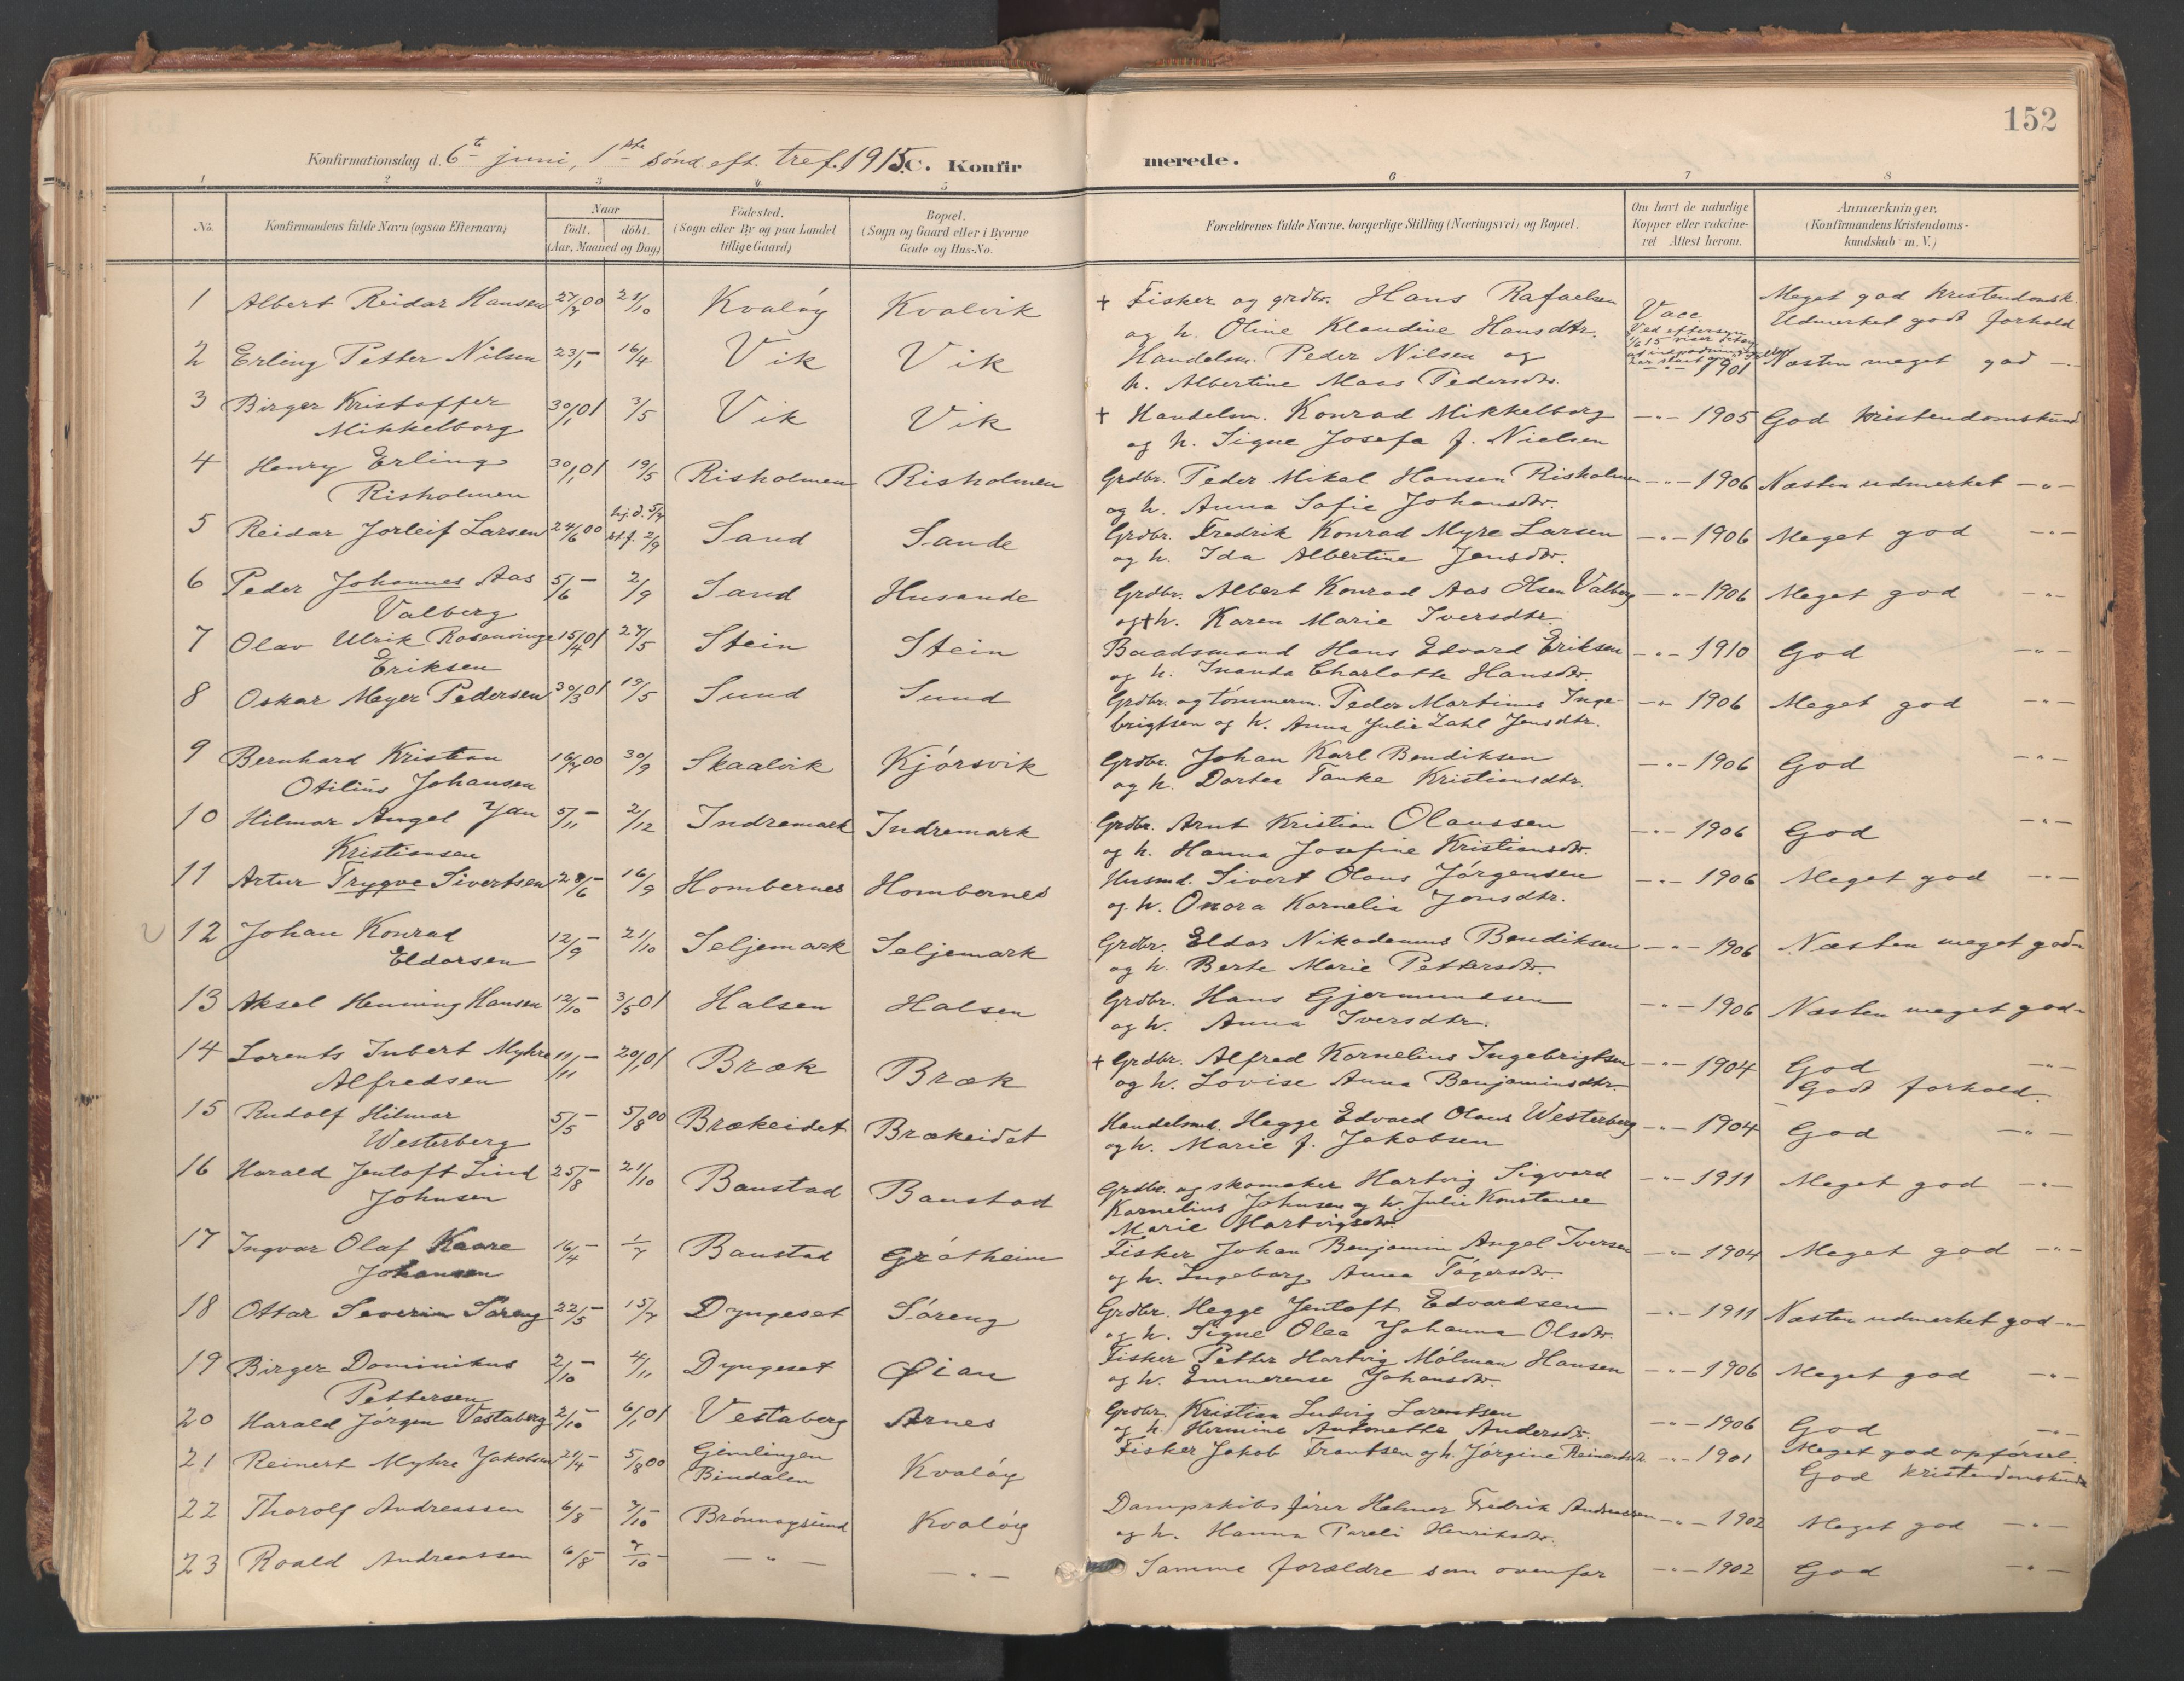 152
Konfirmationsdag d. 6te juni, 1ste sönd. eft. tref. 1915. C. Konfirmerede.
1 2 3 4 5 6 7 8
No. Konfirmandens fulde Navn (ogsaa Efternavn) Naar födt. döbt. (Aar, Maaned og Dag) Födested. (Sogn eller By og paa Landet tillige Gaard) Bopæl. (Sogn og Gaard eller i Byerne Gade og Hus-No. Forældrenes fulde Navne, borgerlige Stilling (Næringsvei) og Bopæl. Om havt de naturlige Kopper eller vakcineret Attest herom. Anmærkninger. (Konfirmandens Kristendomskundskab m. V.)
1 Albert Reidar Hansen 27/7 00 21/10 Kvalöy Kvalvik + Fisker og grdbr. Hans Rafaelsen Vacc. Meget god kristendomsk.
og h. Oline Klaudine Hansdtr. Ved eftersyn Udmerket godt forhold
2 Erling Petter Nilsen 23/1 – 16/4 Vik Vik Handelsm. Peder Nilsen og 1901 Næsten meget god –"–
h. Albertine Maas Pedersdtr.
3 Birger Kristoffer 30/1 01 3/5 Vik Vik + Handelsm. Konrad Mikkelborg –"– 1905 God kristendomskund
Mikkelborg og h. Signe Josefa f. Nielsen
4 Henry Erling 30/1 01 19/5 Risholmen Risholmen Grdbr. Peder Mikal Hansen Risholmen –"– 1906 Næsten udmerket –"–
Risholmen og h. Anna Sofie Johansdtr.
5 Reidar Jorleif Larsen 24/6 00 hj.d. 5/7 st.f. 2/9 Sand Sande Grdbr. Fredrik Konrad Myre Larsen –"– 1906 Meget god –"–
og h. Ida Albertine Jensdtr.
6 Peder Johannes Aas 5/6 – 2/9 Sand Husande Grdbr. Albert Konrad Aas Olsen Valberg –"– 1906 Meget god –"–
Valberg og + h. Karen Marie Iversdtr.
7 Olav Ulrik Rosenvinge 15/4 01 27/5 Stein Stein Baadsmand Hans Edvard Eriksen –"– 1910 God –"–
Eriksen og h. Inanda Charlotte Hansdtr.
8 Oskar Meyer Pedersen 30/3 01 19/5 Sund Sund Grdbr. og tömmerm. Peder Martinus Inge- –"– 1906 Meget god –"–
brigtsen og h. Anna Julie Zahl Jensdtr.
9 Bernhard Kristian 16/7 00 30/9 Skaalvik Kjörsvik Grdbr. Johan Karl Bendiksen –"– 1906 God –"–
Otilius Johansen og h. Dortea Tanke Kristiansdtr.
10 Hilmar Angel Jan 5/11 – 2/12 Indremark Indremark Grdbr. Arnt Kristian Olaussen –"– 1906 God –"–
Kristiansen og h. Hanna Josefine Kristiansdtr.
11 Artur Trygve Sivertsen 28/6 – 16/9 Hombernes Hombernes Husmd. Sivert Olaus Jörgensen –"– 1906 Meget god –"–
og h. Onora Kornelia Jonsdtr.
12 Johan Konrad 12/9 – 21/10 Seljemark Seljemark Grdbr. Eldor Nikodemus Bendiksen –"– 1906 Næsten meget god –"
Eldorsen og h. Berte Marie Pettersdtr.
13 Aksel Henning Hansen 12/10 – 3/5 01 Halsen Halsen Grdbr. Hans Gjermundsen –"– 1906 Næsten meget god –"
og h. Anna Iversdtr.
14 Lorents Inbert Myhre 11/11 – 20/1 01 Bræk Bræk + Grdbr. Alfred Kornelius Ingebrigtsen –"– 1904 God –"–
Alfredsen og h. Lovise Anna Benjaminsdtr. Godt forhold.
15 Rudolf Hilmar 5/5 – 5/8 00 Brækeidet Brækeidet Handelsmd. Hegge Edvard Olaus Westerberg –"– 1904 God –"–
Westerberg og h. Marie f. Jakobsen
16 Harald Jentoft Lind 25/8 – 21/10 Baustad Baustad Grdbr. og skomaker Hartvig Sigvard –"– 1911 Meget god –"–
Johnsen Kornelius Johnsen og h. Julie Konstanse
Marie Hartvigsdtr.
17 Ingvar Olaf Kaare 16/4 – 1/7 Baustad Grötheim Fisker Johan Benjamin Angel Iversen –"– 1904 Meget god –"–
Johansen og h. Ingeborg Anna Tögersdtr.
18 Ottar Severin Söreng 22/5 – 15/7 Dyngeset Söreng Grdbr. Hegge Jentoft Edvardsen –"– 1911 Næsten udmerket god –"–
og h. Signe Olea Johanna Olsdtr.
19 Birger Dominikus 2/10 – 4/11 Dyngeset Øian Fisker Petter Hartvig Mölman Hansen –"– 1906 Meget god –"–
Pettersen og h. Emmerense Johansdtr.
20 Harald Jörgen Vestaberg 2/10 – 6/1 01 Vestaberg Arnes Grdbr. Kristian Ludvig Lorentsen –"– 1906 God –"–
og h. Hermine Antonette Andersdtr.
21 Reinert Myhre Jakobsen 21/4 – 5/8 00 Gimlingen Kvalöy Fisker Jakob Frantsen og h. Jörgine Reinertsdtr. –"– 1901 Meget god opförsel.
Bindalen God kristendomskunds
22 Thorolf Andreassen 6/8 – 7/10 – Brönnøysund Kvalöy Dampskibsförer Helmer Fredrik Andreassen –"– 1902 Meget god –"–
og h. Hanna Pareli Henriksdtr.
23 Roald Andreassen 6/8 – 7/10 – –"– –"– Samme forældre som ovenfor –"– 1902 God –"–